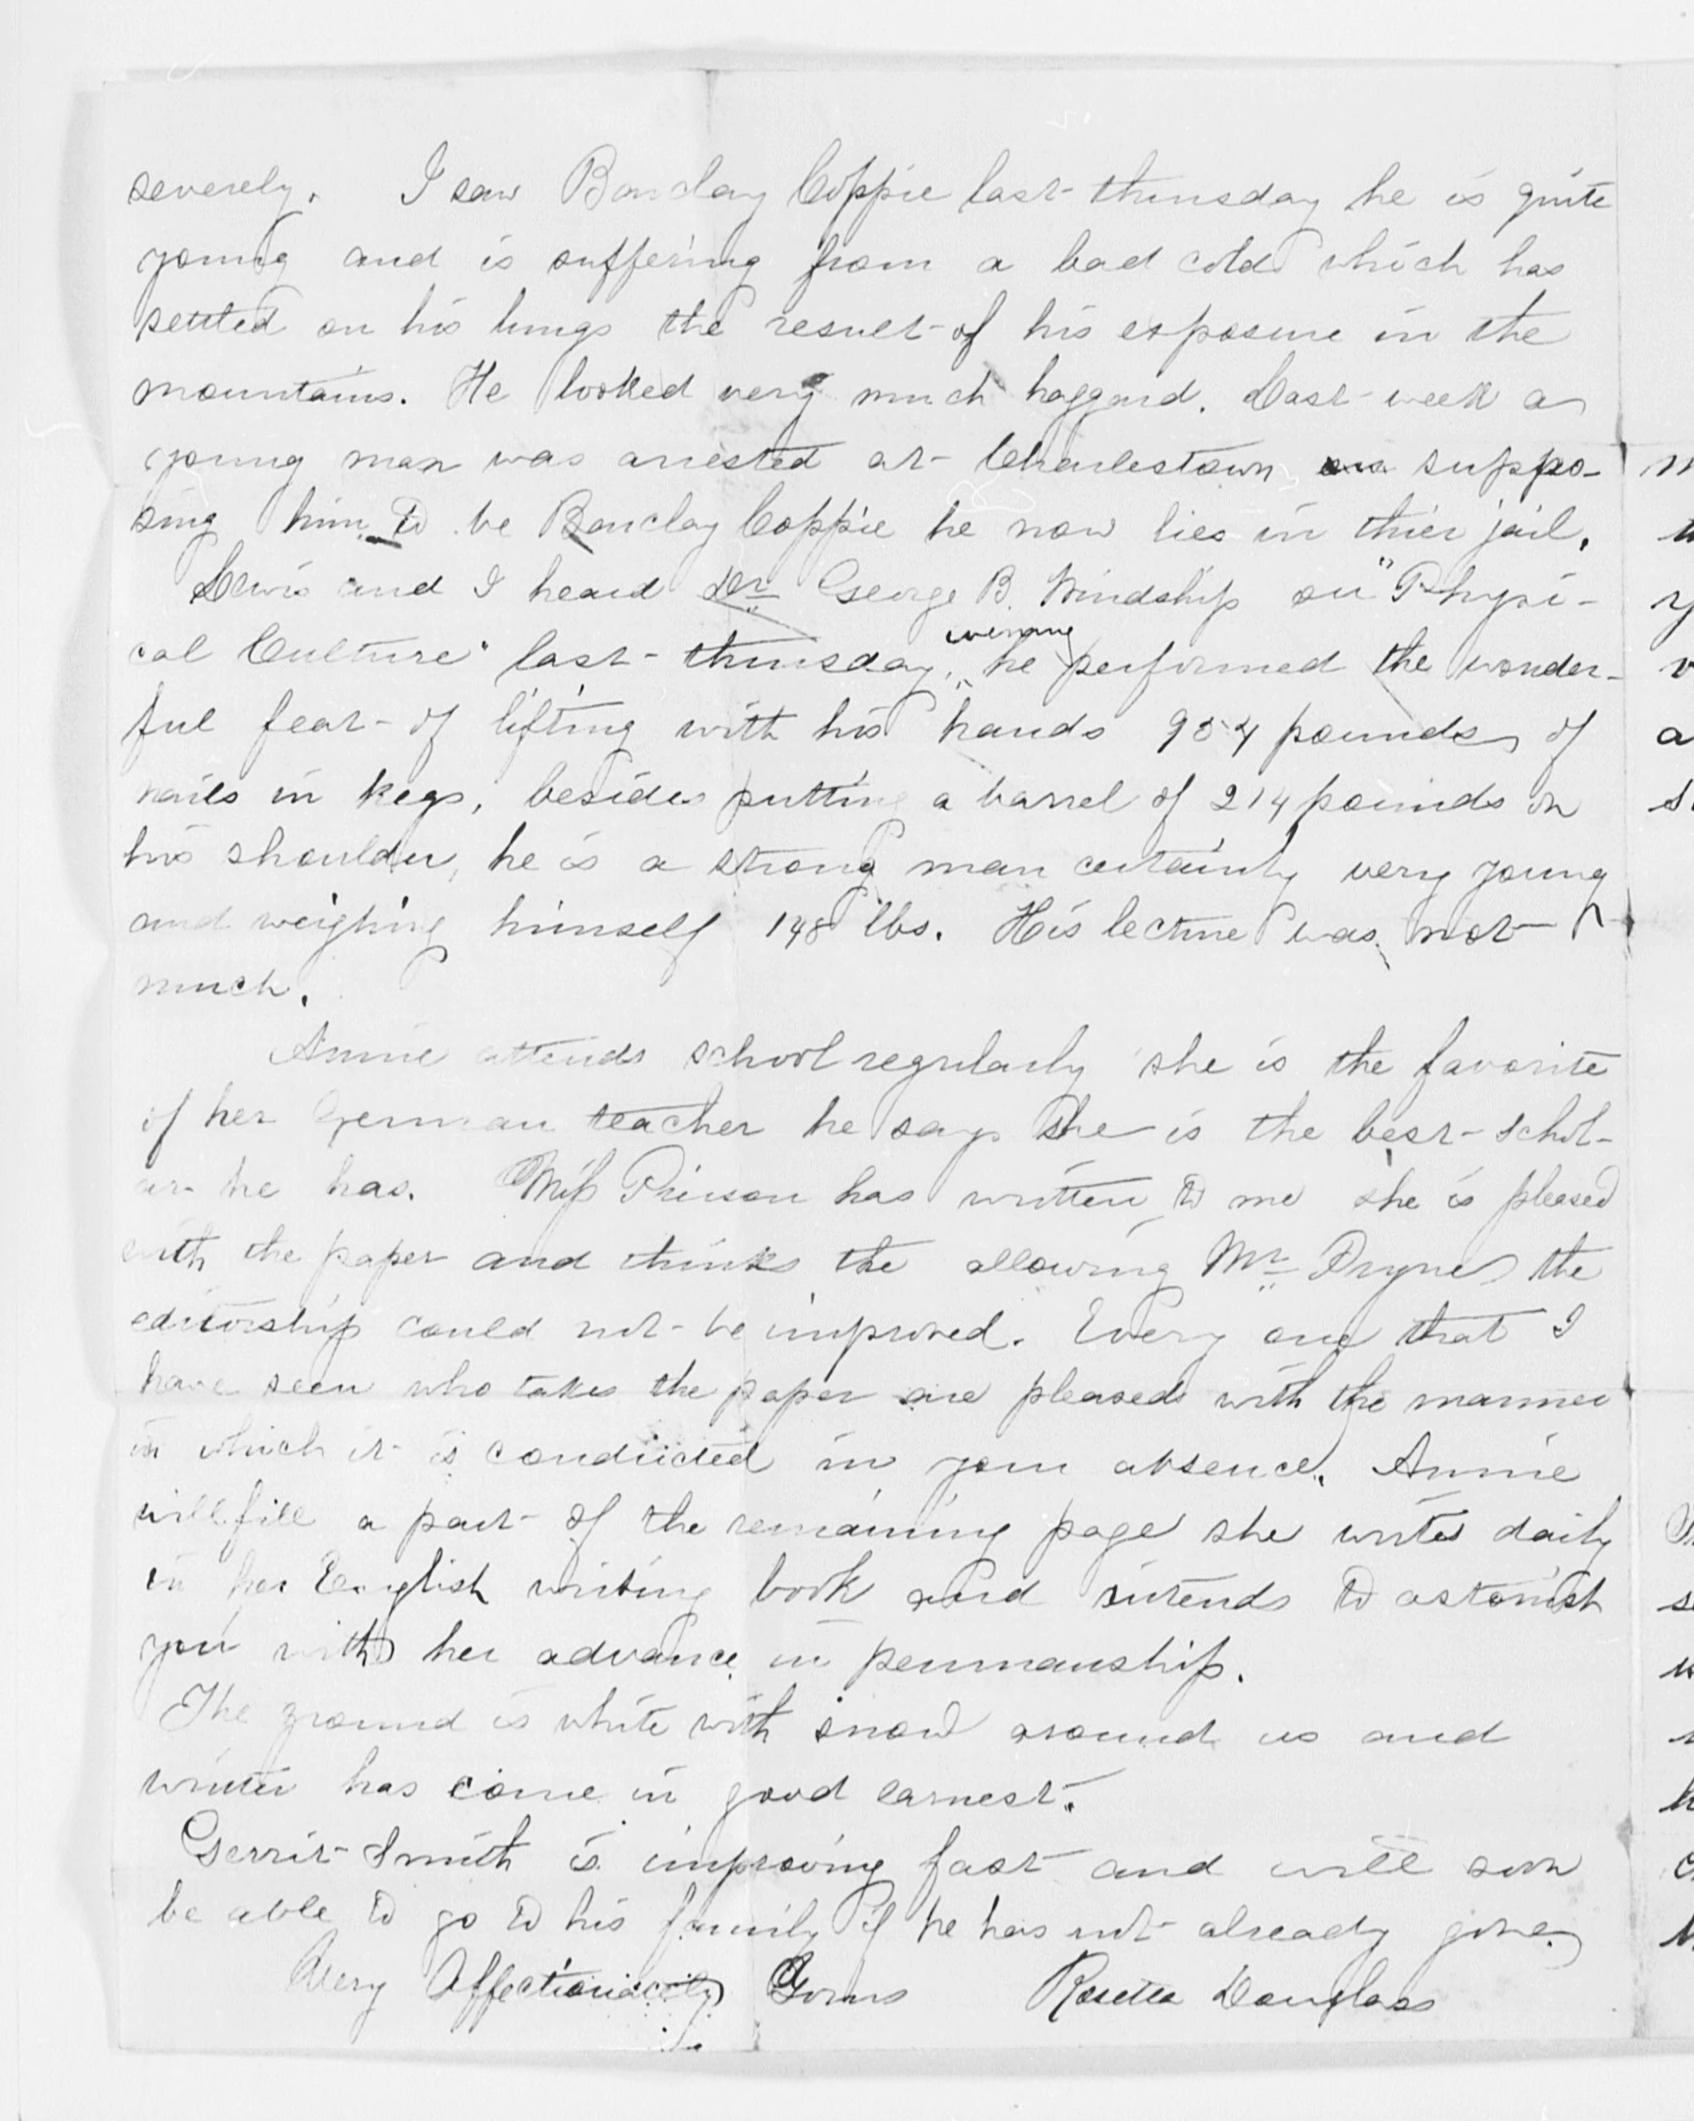 severely. I saw Barclay Coppie last thursday he is quite
young and is suffering from a bad cold which has
settled on his lungs the result of his exposure in the
mountains. He looked very much haggard. Last week a
young man was arrested at Charlestown suppo-
sing him to be Barclay Coppie he now lies in thier jail.
Lewis and I heard Dr George B. Windship on "Physi-
cal Culture" last thursday evening he performed the wonder-
ful feat of lifting with his hands 954 pounds of
nails in kegs, besides putting a barrel of 214 pounds on
his shoulder, he is a strong man certainly very young
and weighing himself 148 lbs. His lecture was not
much.
Annie attends school regularly she is the favorite
of her German teacher he says she is the best schol-
ar he has. Miss Pierson has written to me she is pleased
with the paper and thinks the allowing Mr Pryne the
editorship could not be improved. Every one that I
have seen who takes the paper are pleased with the manner
in which it is conducted in your absence. Annie
will fill a part of the remaining page she writes daily
in her English writing book and intends to astonish
you with her advance in penmanship.
The ground is white with snow around us and
winter has come in good earnest.
Gerrit Smith is improving fast and will soon
be able to go to his family if he has not already gone.
Very Affectionately Yours Rosetta Douglass